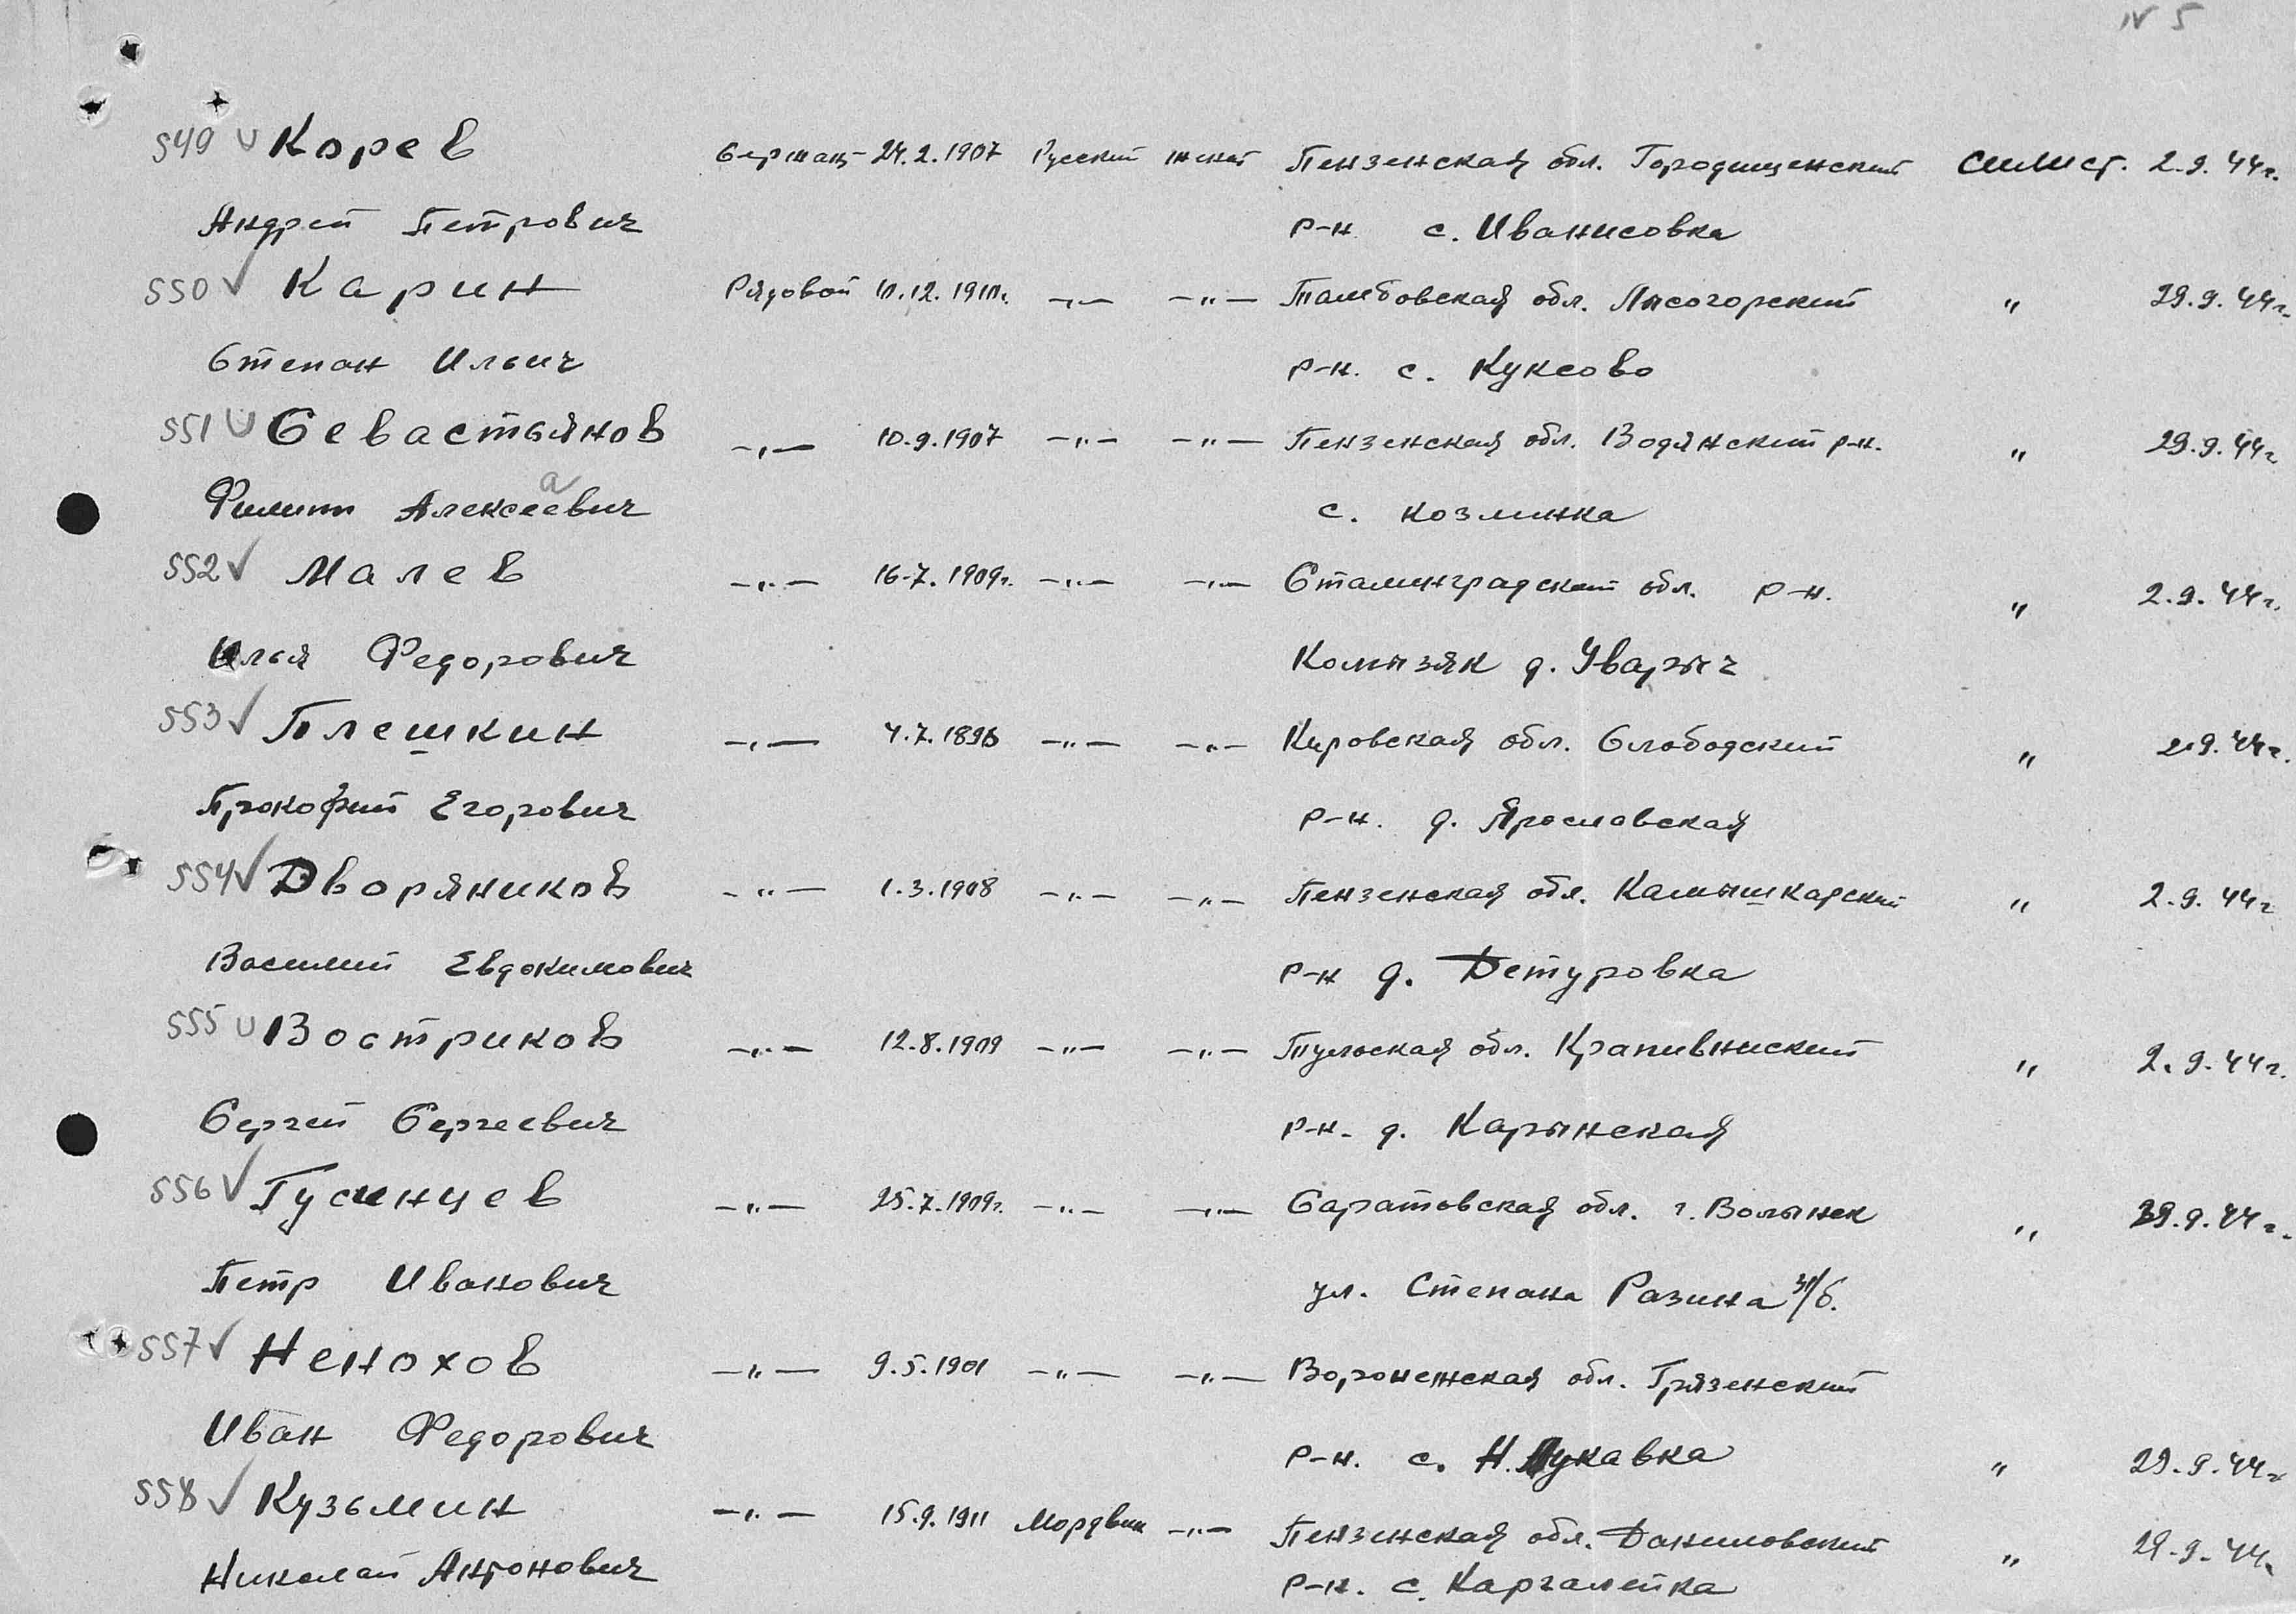 № 5
549 Корев Сержант 24.2.1907 Русский Пензенская обл. Городищенский 2.9.44г.
Андрей Петрович р-н с. Иванисовка
550 Карин Рядовой 10.12.1910г. —"— —"— Тамбовская обл. Лысогорский " 29.9.44г.
Степан Ильич р-н. с. Куксово
551 Севастьянов —"— 10.9.1907 —"— —"— Пензенская обл. Водянский р-н. " 29.9.44г
а
Филипп Алексеевич с. Козлинка
552 Малев —"— 16.7.1909г. —"— —"— Сталинградский обл. р-н. " 2.9.44г.
Илья Федорович Комызяк д. Уварыч
553 Плешкин —"— —"— —"— Кировская обл. Слободский " 2.9.44г.
Прокофий Егорович р-н. д. Ярославская
554 Дворяников —"— 1.3.1908 —"— —"— Пензенская обл. Камышкарский " 2.9.44г
Василий Евдокимович р-н д. Детуровка
555 Востриков —"— 12.8.1909 —"— —"— Тульская обл. Крапивниский " 2.9.44г.
Сергей Сергеевич р-н. д. Карынская
556 Гусинцев —"— 25.7.1909г. —"— —"— Саратовская обл. г. Волынск " 29.9.44г.
Петр Иванович ул. Степана Разина
557 Ненохов —"— 9.5.1901 —"— —"— Воронежская обл. Грязенский
Иван Федорович р-н. с. Н. Лукавка " 29.9.44г
558 Кузьмин —"— 15.9.1911 Мордвин —"— Пензенская обл. Даниловский " 29.9.44г
Николай Антонович р-н. с. Каргалейка